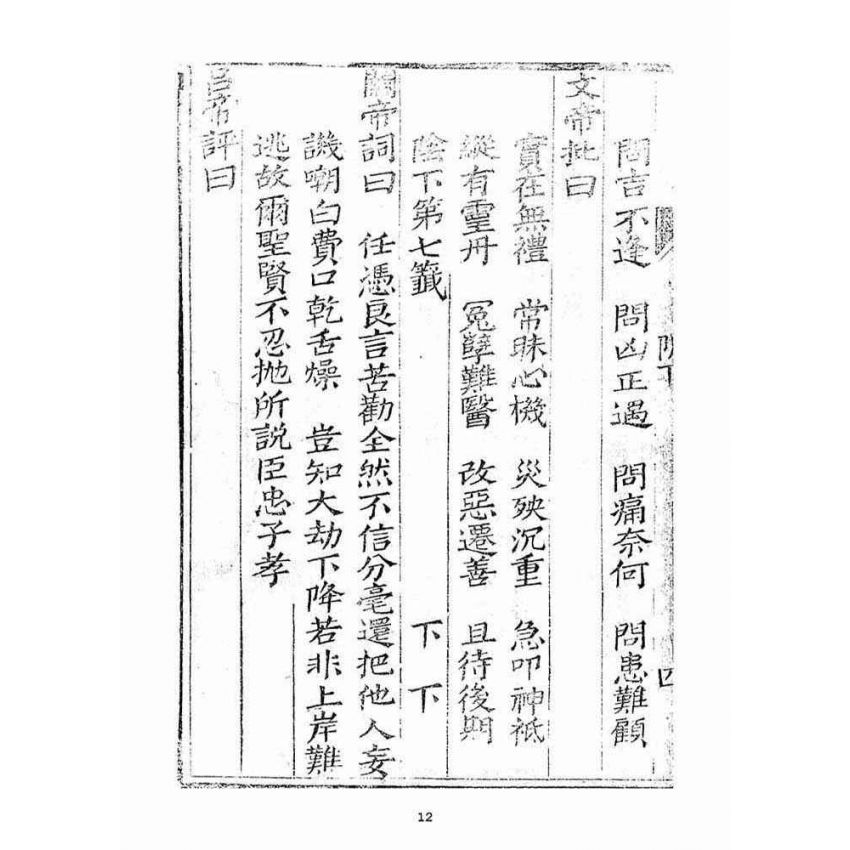 陰下
四
問吉不逢　問凶正遇　問痛奈何　問患難顧
文帝批曰
實在無禮　常昧心機　災殃沉重　急叩神祇
縱有霊丹　冤孽難醫　改惡遷善　且待後期
陰下第七籤　下下
關帝詞曰　任憑良言苦勸全然不信分毫還把他人妄
譏嘲白費口乾舌燥　豈知大劫下降若非上岸難
逃故爾聖賢不忍拋所說臣忠子孝
呂帝評曰
12